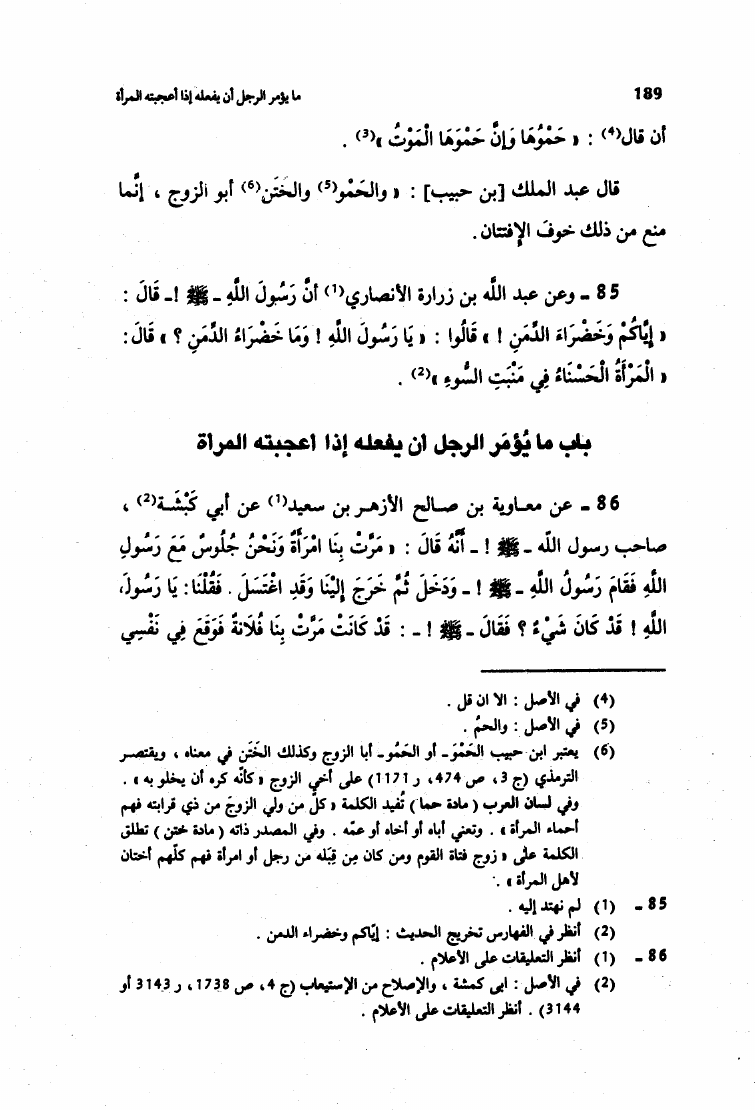 189 ما يؤمر الرجل أن يفعله إذا أعجبته المرأة
أن قال(4) : « حَمْوُهَا وَإِنَّ حَمْوَهَا الْمَوْتُ »(3) .
قال عبد الملك [بن حبيب] : « والحَمْو(5) والخَتَن(6) أبو الزوج ، إنَّما
منع من ذلك خوفَ الإفتتان .
85 ـ وعن عبد اللَّه بن زرارة الأنصاري(1) أنَّ رَسُولَ اللَّهِ ـ ﷺ !ـ قَالَ :
« إِيَّاكُمْ وَخَضْرَاءَ الدِّمَنِ ! » قَالُوا : « يَا رَسُولَ اللَّهِ ! وَمَا خَضْرَاءُ الدِّمَنِ ؟ » قَالَ :
« الْمَرْأَةُ الْحَسْنَاءُ فِي مَنْبَتِ السُّوءِ »(2) .
باب ما يُؤمَر الرجل أن يفعله إذا أعجبته المرأة
86 ـ عن معاوية بن صالح الأزهر بن سعيد(1) عن أبي كَبْشَة(2) ،
صاحب رسول اللَّه ـ ﷺ ! ـ أَنَّهُ قَالَ : « مَرَّتْ بِنَا امْرَأَةٌ وَنَحْنُ جُلُوسٌ مَعَ رَسُولِ
اللَّهِ فَقَامَ رَسُولُ اللَّهِ ـ ﷺ ! ـ وَدَخَلَ ثُمَّ خَرَجَ إِلَيْنَا وَقَدِ اغْتَسَلَ . فَقُلْنَا : يَا رَسُولَ
اللَّهِ ! قَدْ كَانَ شَيْءٌ ؟ فَقَالَ ـ ﷺ ! ـ : قَدْ كَانَتْ مَرَّتْ بِنَا فُلَانَةٌ فَوَقَعَ فِي نَفْسِي
(4) في الأصل : الا ان قل .
(5) في الأصل : والحمُ .
(6) يعتبر ابن حبيب الحَمْوَ ـ أو الحَمُو ـ أبا الزوج وكذلك الخَتَن في معناه ، ويقتصر
الترمذي (ج 3، ص 474، ر 1171) على أخي الزوج « كأنّه كره أن يخلو به » .
وفي لسان العرب ( مادة حما ) تُفيد الكلمة « كلّ من ولي الزوجَ من ذي قرابته فهم
أحماء المرأة » . وتعني أباه أو أخاه أو عمّه . وفي المصدر ذاته ( مادة ختن ) تطلق
الكلمة على « زوج فتاة القوم ومن كان مِن قِبَله من رجل أو امرأة فهم كلّهم أختان
لأهل المرأة » .
85 ـ (1) لم نهتد إليه .
(2) أنظر في الفهارس تخريج الحديث : إيّاكم وخضراء الدمن .
86 ـ (1) أنظر التعليقات على الأعلام .
(2) في الأصل : ابى كمشة ، والإصلاح من الإستيعاب (ج 4، ص 1738، ر 3143 أو
3144) . أنظر التعليقات على الأعلام .